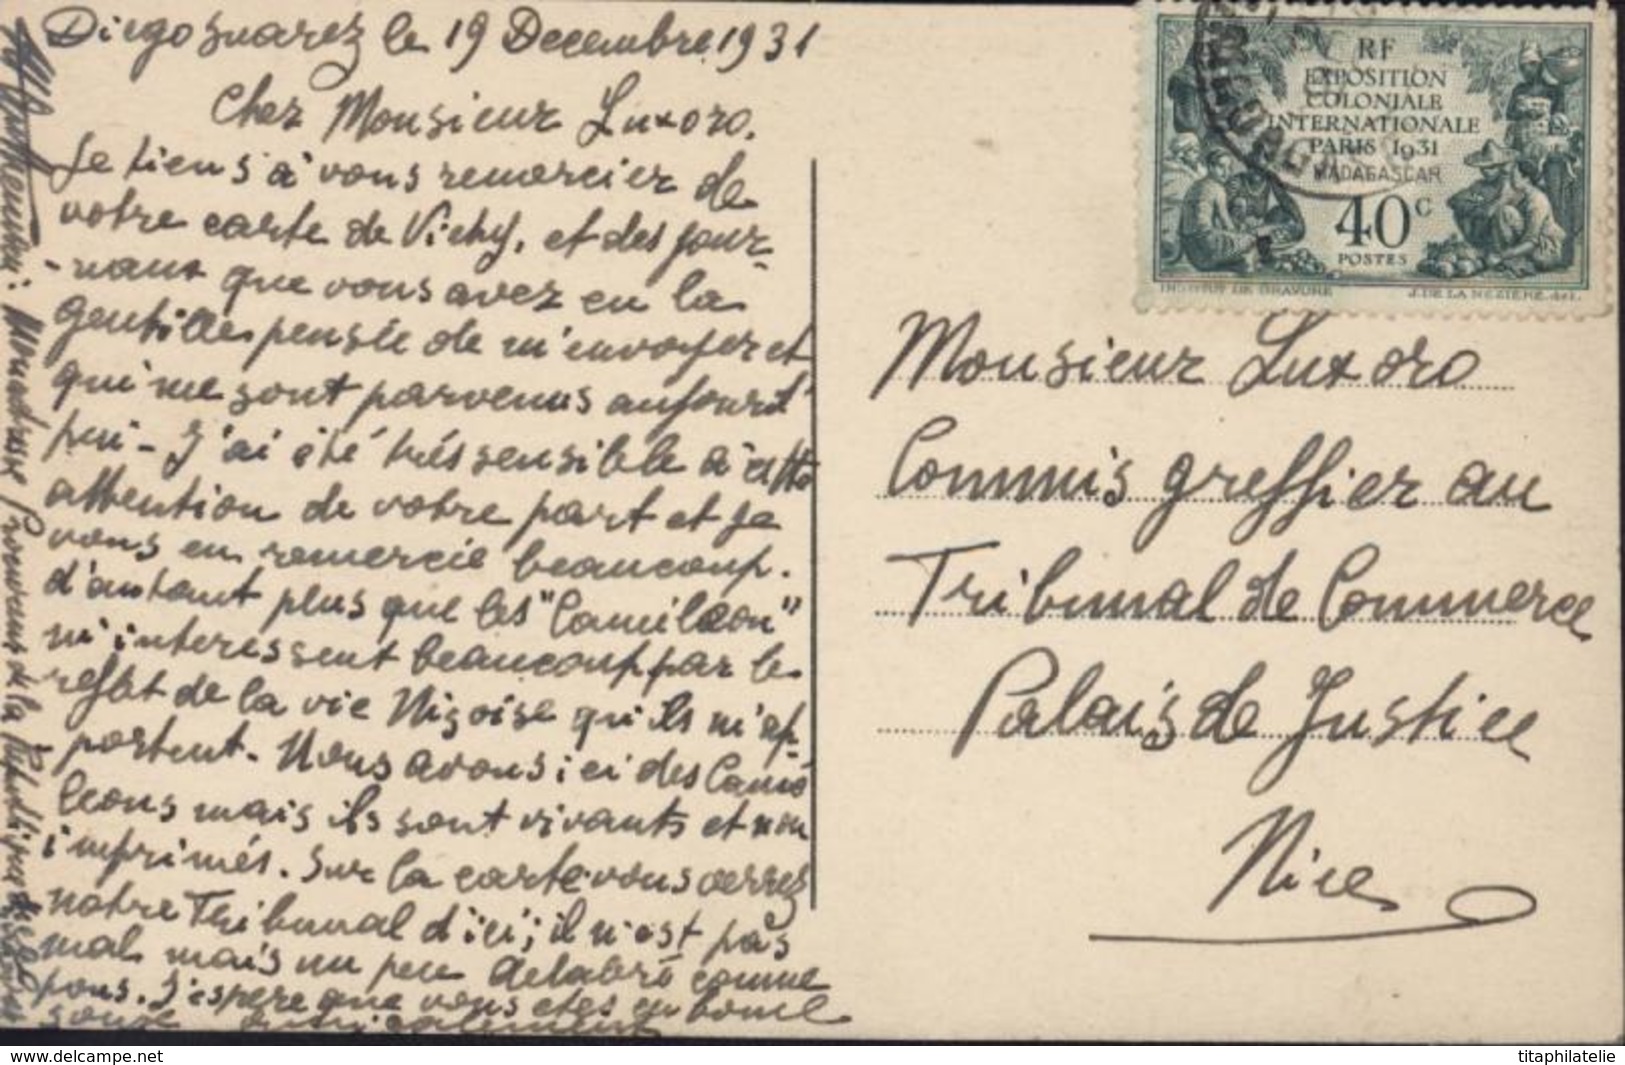 Diego Suarez le 19 Decembre 1931
Cher Monsieur Luxoro.
Je tiens à vous remercier de
votre carte de Vichy, et des jour-
-naux que vous avez eu la
gentille pensée de m'envoyer et
qui me sont parvenus aujourd'
hui - J'ai été très sensible à cette
attention de votre part et je
vous en remercie beaucoup.
d'autant plus que les "Caméléon"
m'interessent beaucoup par le
reflet de la vie Niçoise qu'ils m'ap-
portent. Nous avons ici des Camé
léons mais ils sont vivants et non
imprimés. Sur la carte vous verrez
notre Tribunal d'ici; il n'est pas
mal mais un peu delabré comme
nous. J'espere que vous etes en bonne
Mon adresse Procureur de la République Diego
RF
EXPOSITION
COLONIALE
INTERNATIONALE
PARIS 1931
MADAGASCAR
40c
POSTES
INSTITUT DE GRAVURE
J. DE LA NEZIERE. del.
Monsieur Luxoro
Commis greffier au
Tribunal de Commerce
Palais de Justice
Nice
www.delcampe.net
titaphilatelie